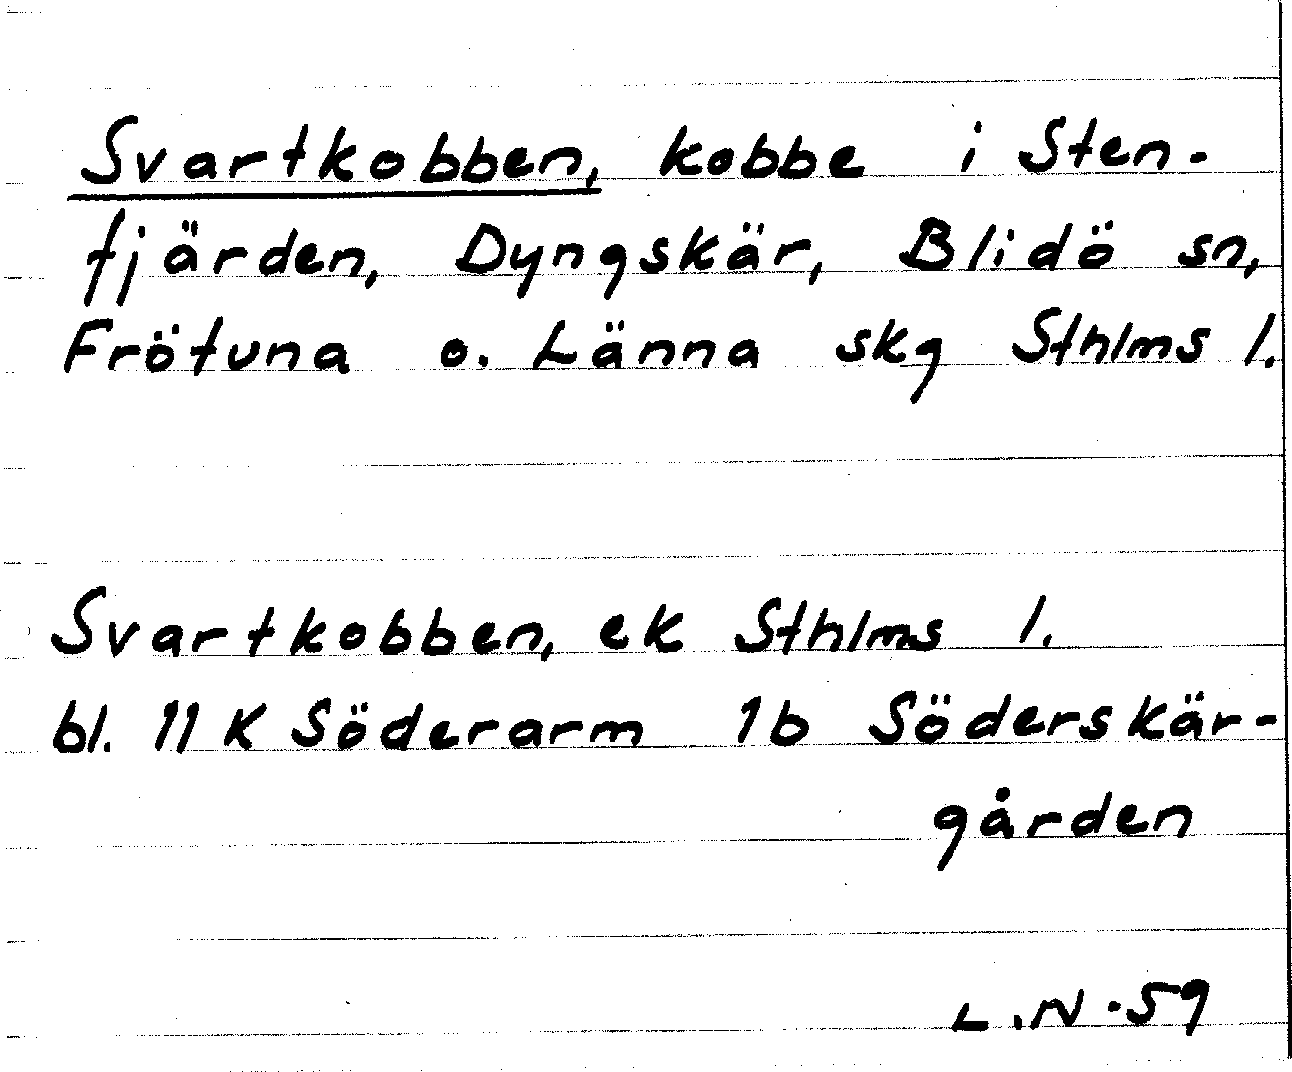 Svartkobben, kobbe i Sten-
fjärden, Dyngskär, Blidö sn,
Frötuna o. Länna skg Sthlms l.
Svartkobben, ek Sthlms l.
bl. 11 K Söderarm 1b Söderskär-
gården
L.N.59